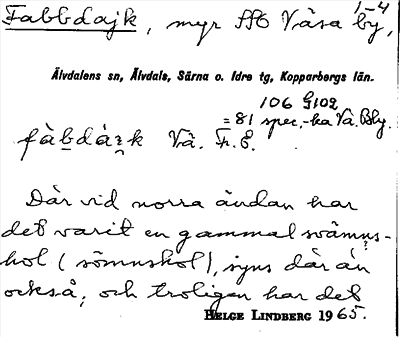 Fabbdajk, myr SSO Våsa by,
1-4
Älvdalens sn, Älvdals, Särna o. Idre tg, Kopparbergs län.
106 G102
= 81 spec.-ka Vå. Bby.
fàbdàɪk Vå. Fr. E.
Där vid norra ändan har
det varit en gammal svämns-
hol (sömnshol), syns där än
också, och troligen har det
HELGE LINDBERG 1965.